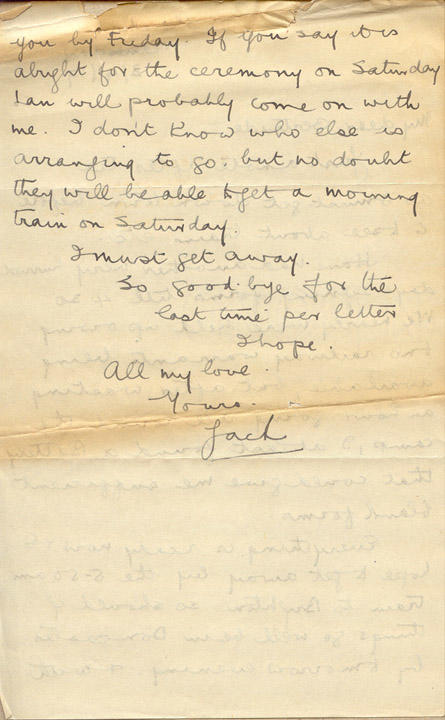 you by Friday. If you say it is
alright for the ceremony on Saturday
Ian will probably come on with
me. I don't know who else is
arranging to go but no doubt
they will be able to get a morning
train on Saturday.
I must get away.
So good bye for the
last time per letter
I hope.
All my love
Yours.
Jack